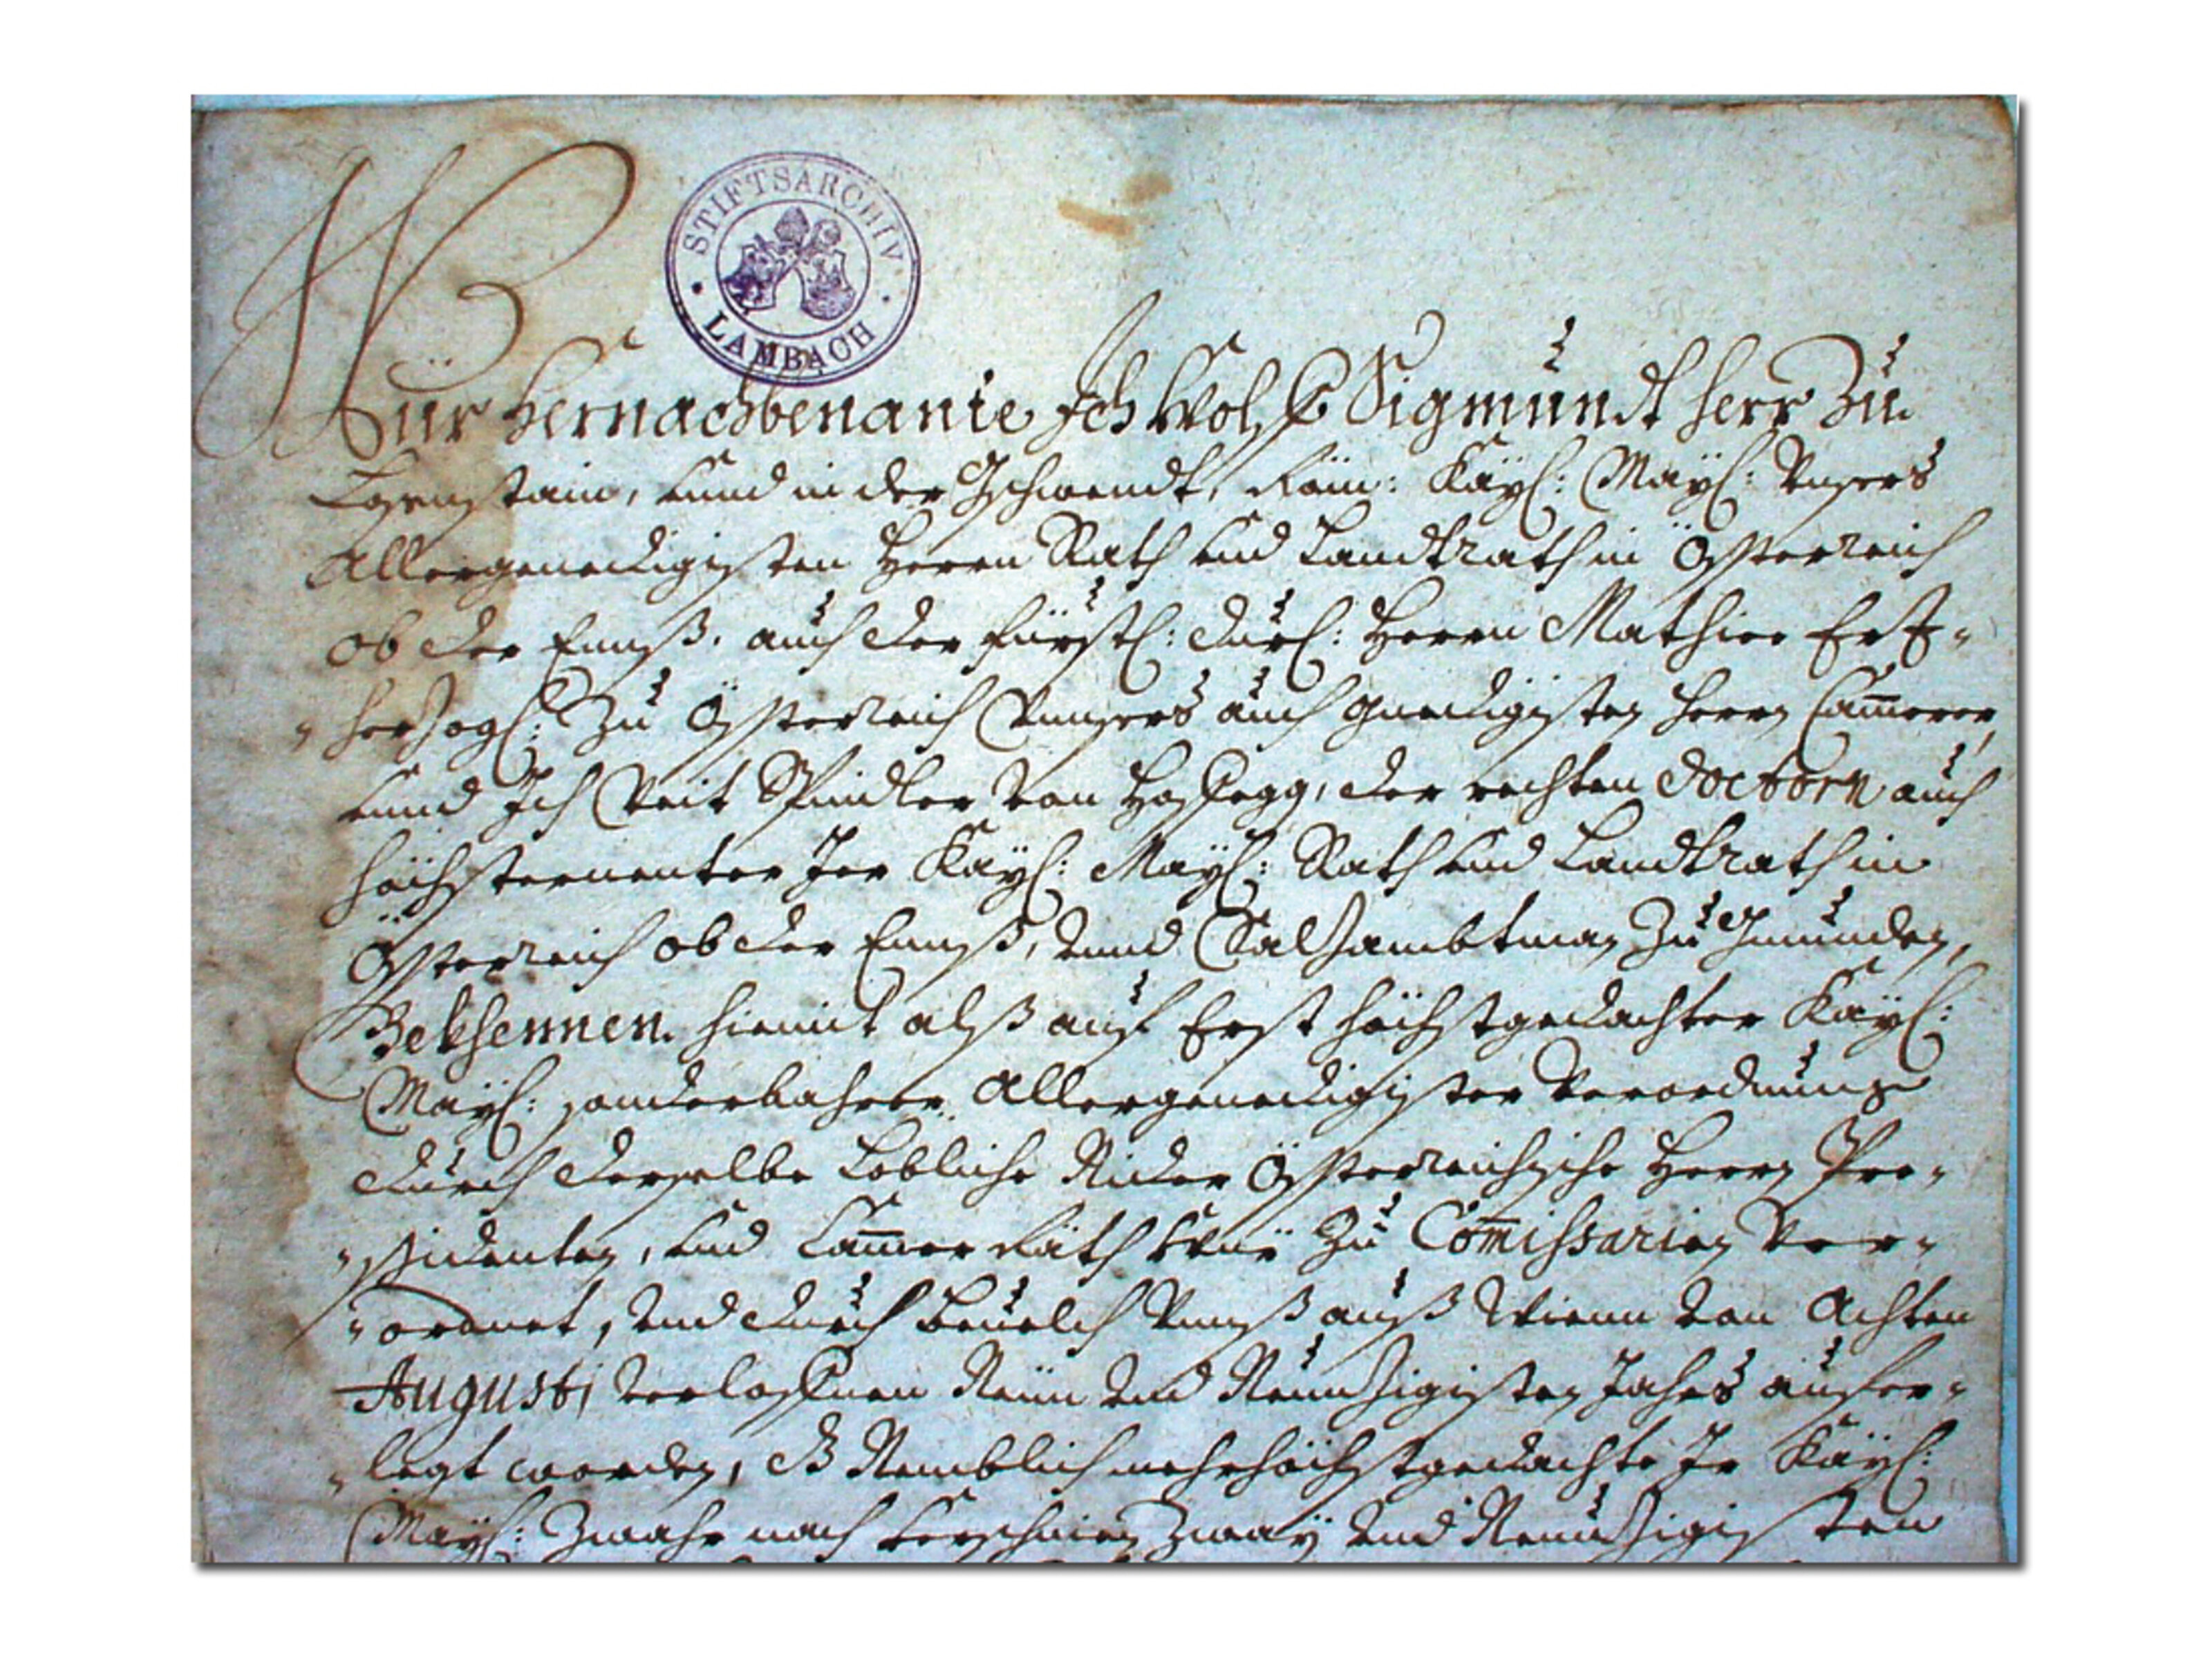 STIFTSARCHIV
LAMBACH
Wür Hernachbenante Ich Wolf Sigmundt Herr Zu
Losenstain, vnnd in der Gschwendt, Röm: Kaÿ: Maÿ: Vnsers
Allergenedigisten Herrn Rath vnd Landtrath in Össterreich
ob der Ennß, auch der Fürstl: Durl: Herrn Mathiæ Ertz-
-herzogl: Zu Össterreich Vnnsers auch gnedigisten Herrn Camerer,
vnnd Ich Veit Spindler von Hofegg, der rechten doctorn auch
höchsternenter Irer Kaÿ: Maÿ: Rath vnd Landtrath in
Össterreich ob der Ennß, vnnd Salzambtman Zu Gmunden,
Bekhennen hiemit alß auf Erst höchstgedachter Kaÿ:
Maÿ: sonderbahrer Allergenedigister Verordnung
durch derselbe Lobliche Nider Össterreichische Herrn Pre-
-sidenten, vnd Camer Räth vnnß Zu Comissarien Ver-
-ordnet, vnd durch beuelch Vnnß auß Wienn von Achten
Augusti verloffenen Neün vnd Neunzigisten Jahrs aufer-
-legt worden, dß Nemblich mehrhöchstgedachte Ir Kaÿ:
Maÿ: Zwahr nach verschinen Zwaÿ vnd Neunzigisten